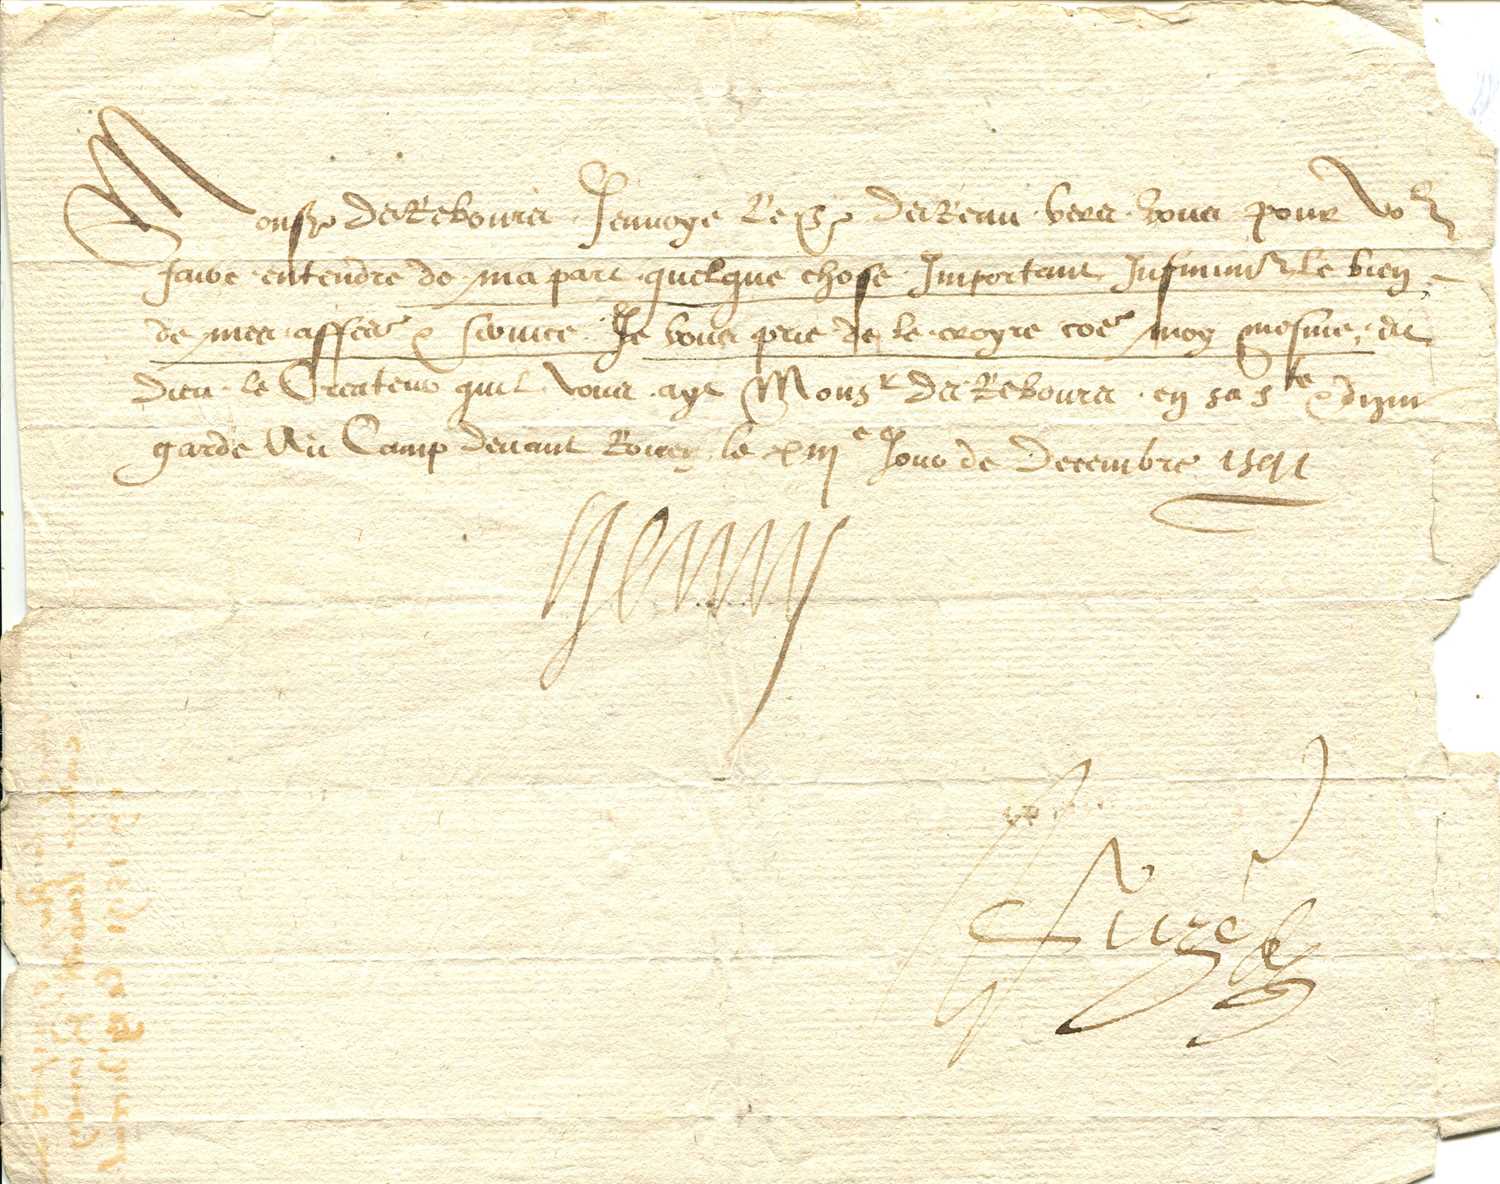 Monsr de Rebours Jenvoye le Sr de Reau vers vous pour vo
faire entendre de ma part quelque chose Important Infinimt le bien
de mes affes & service Je vous prie de le croyre coe moy mesme, et
dieu le Createur quil vous ayt Monsr de Rebours en sa ste & digne
garde Au Camp devant Rouen le xiije Jour de Decembre 1591
Henry
Ruzé